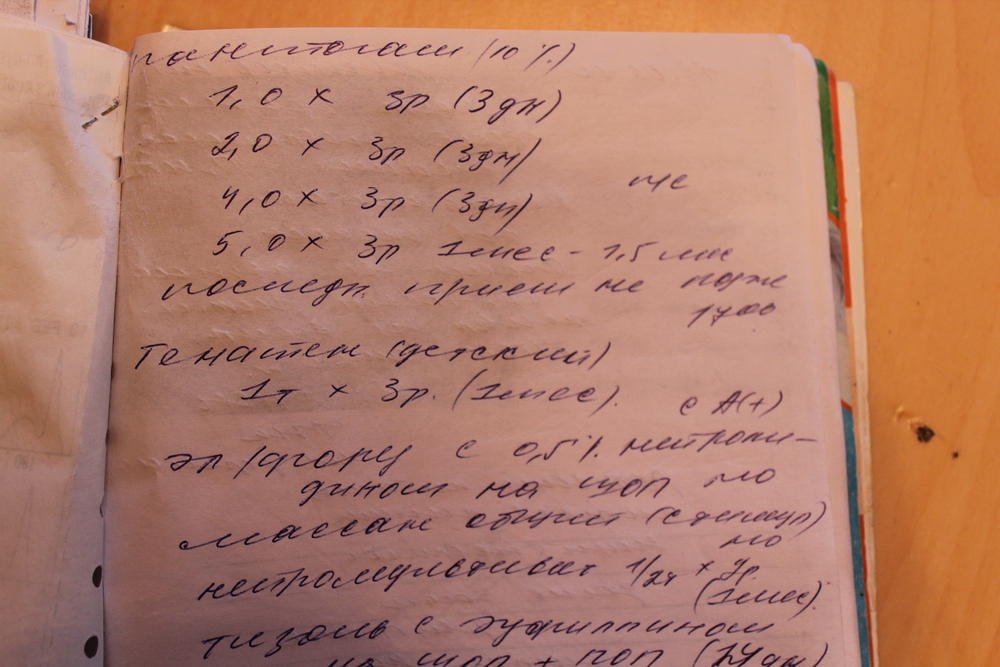 пантогам (10%)
1,0 х 3р (3дн)
2,0 х 3р (3дн)
4,0 х 3р (3дн)
5,0 х 3р 1мес - 1,5 мес
последн. прием не позже
17 00
Тенатен (детский)
1т х 3р. (1мес).
с А(+)
эл/форез с 0,5% нейроми-
дином на шоп №10
массаж общий (стимул)
№10
нейромультивит 1/2т х
(1мес).
тизоль с эуфиллином
на шоп + поп